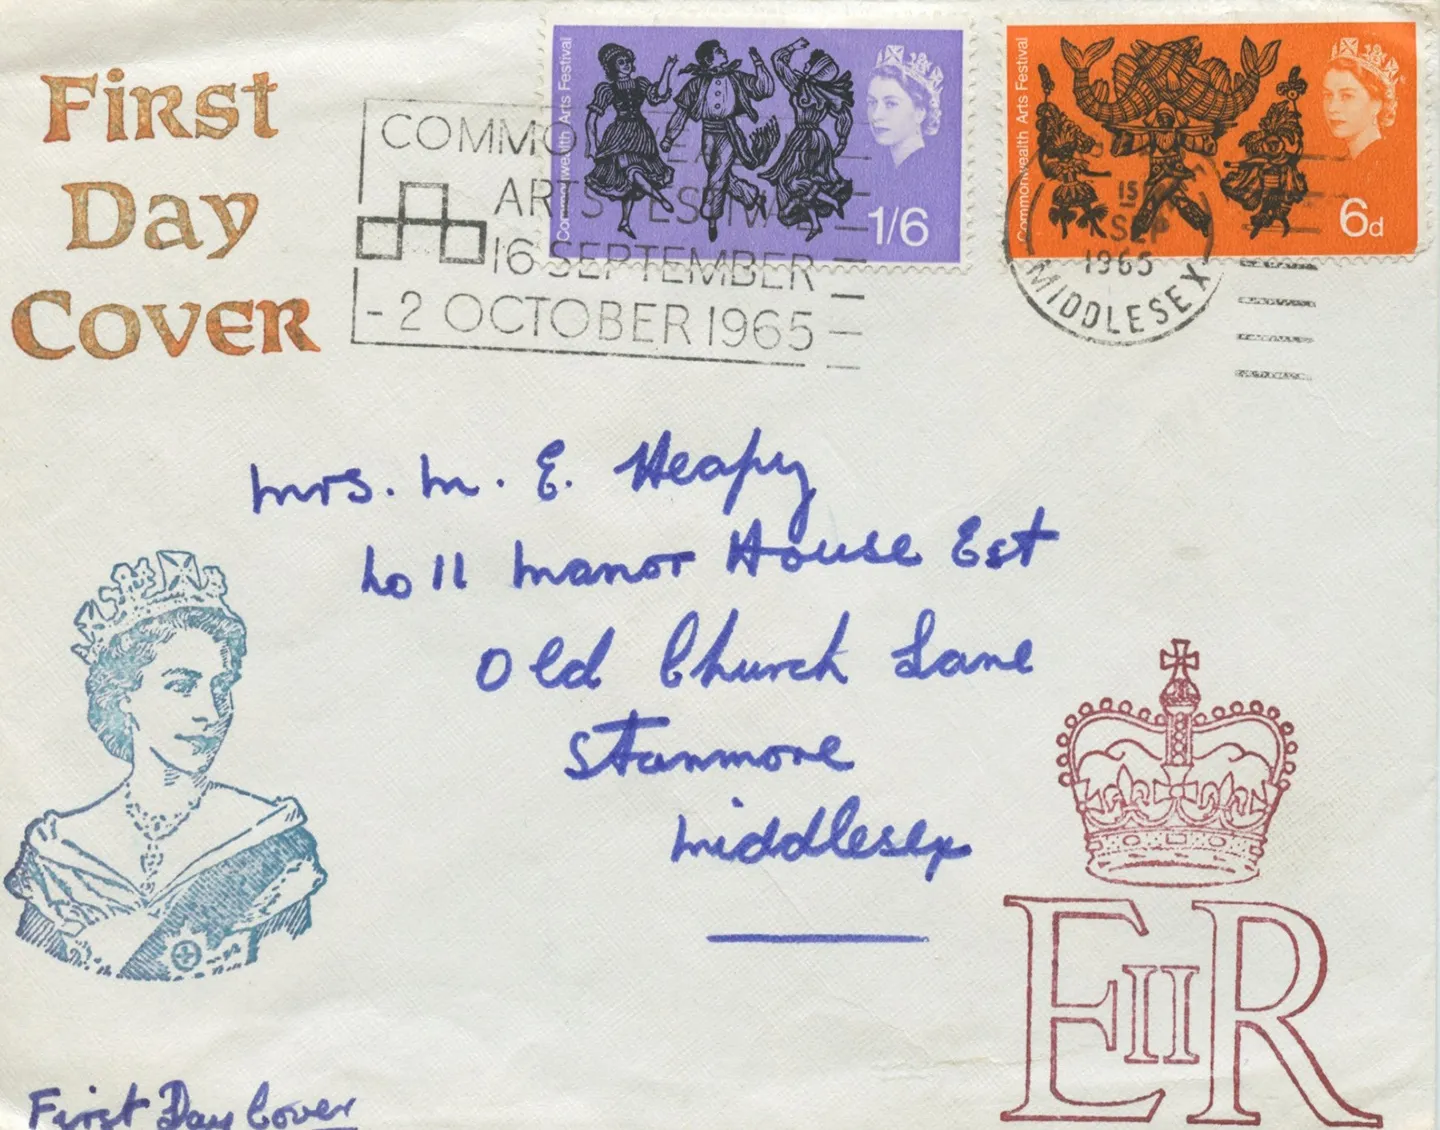 First
Day
Cover
Commonwealth Arts Festival
1/6
Commonwealth Arts Festival
6d
COMMO
ARTS FESTIVAL
16 SEPTEMBER
- 2 OCTOBER 1965
15
SEP
1965
MIDDLESEX
Mrs. M. E. Heapy
No 11 Manor House Est
Old Church Lane
Stanmore
Middlesex
EIIR
First Day Cover